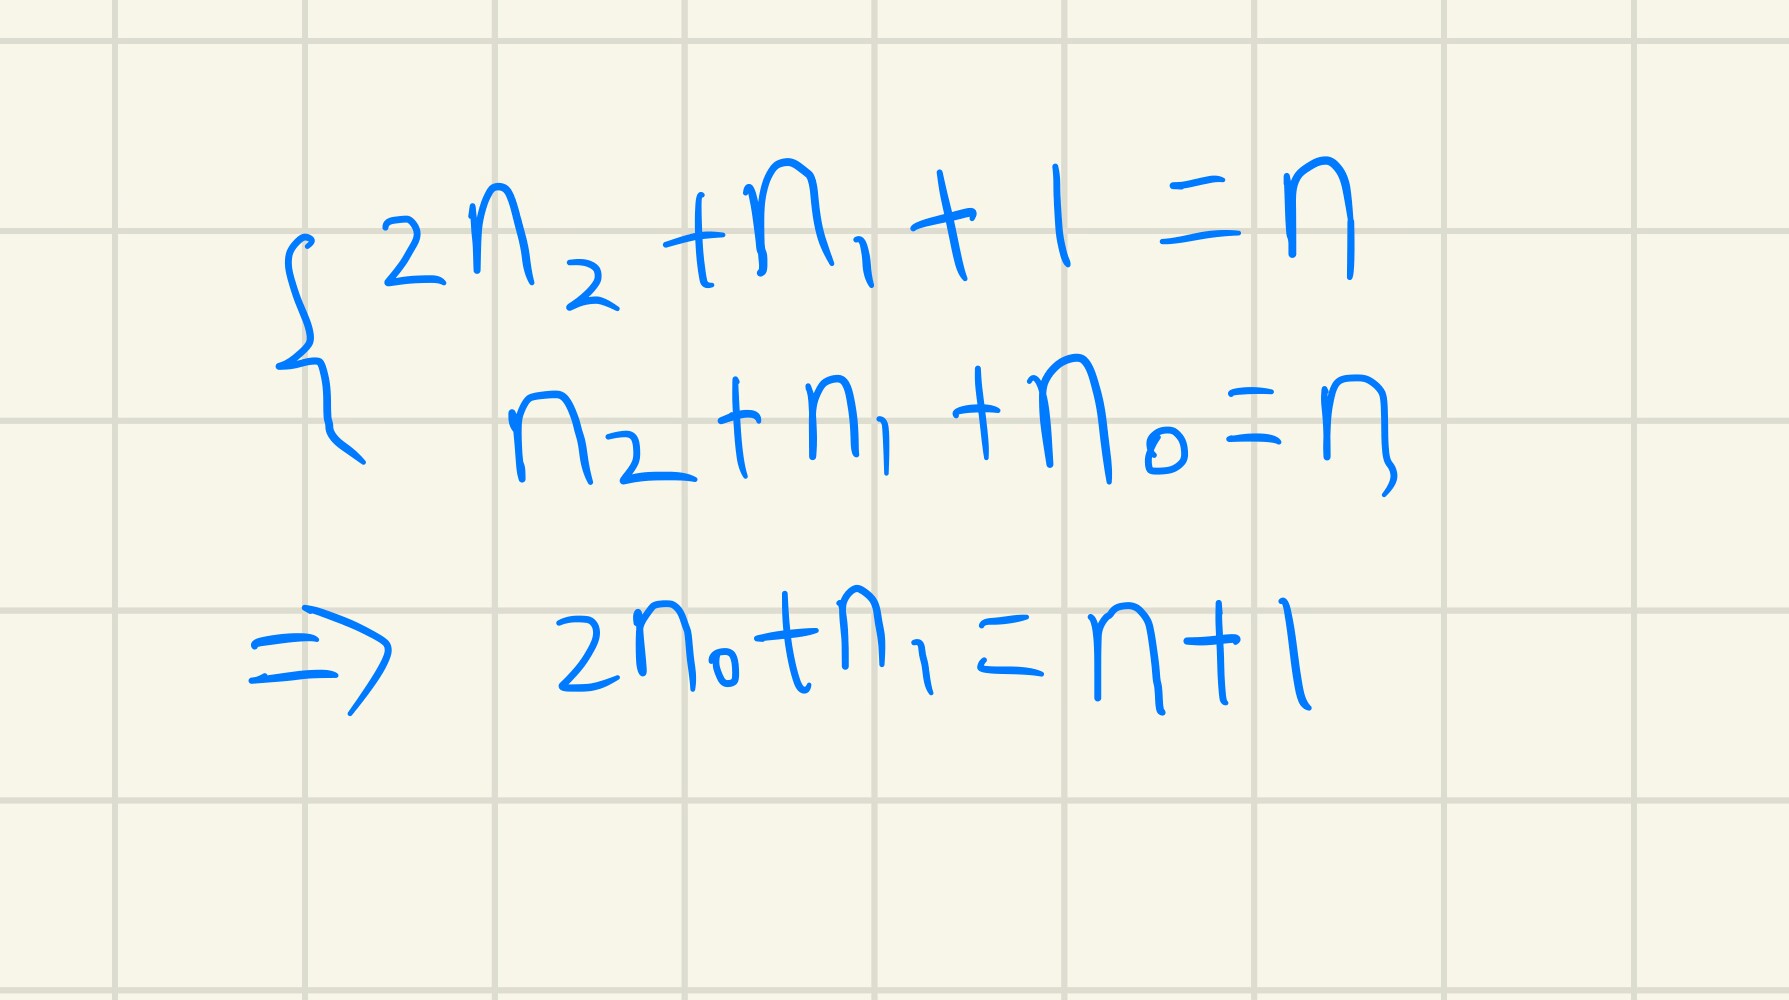 { 2n₂ + n₁ + 1 = n
n₂ + n₁ + n₀ = n
⇒ 2n₀ + n₁ = n + 1